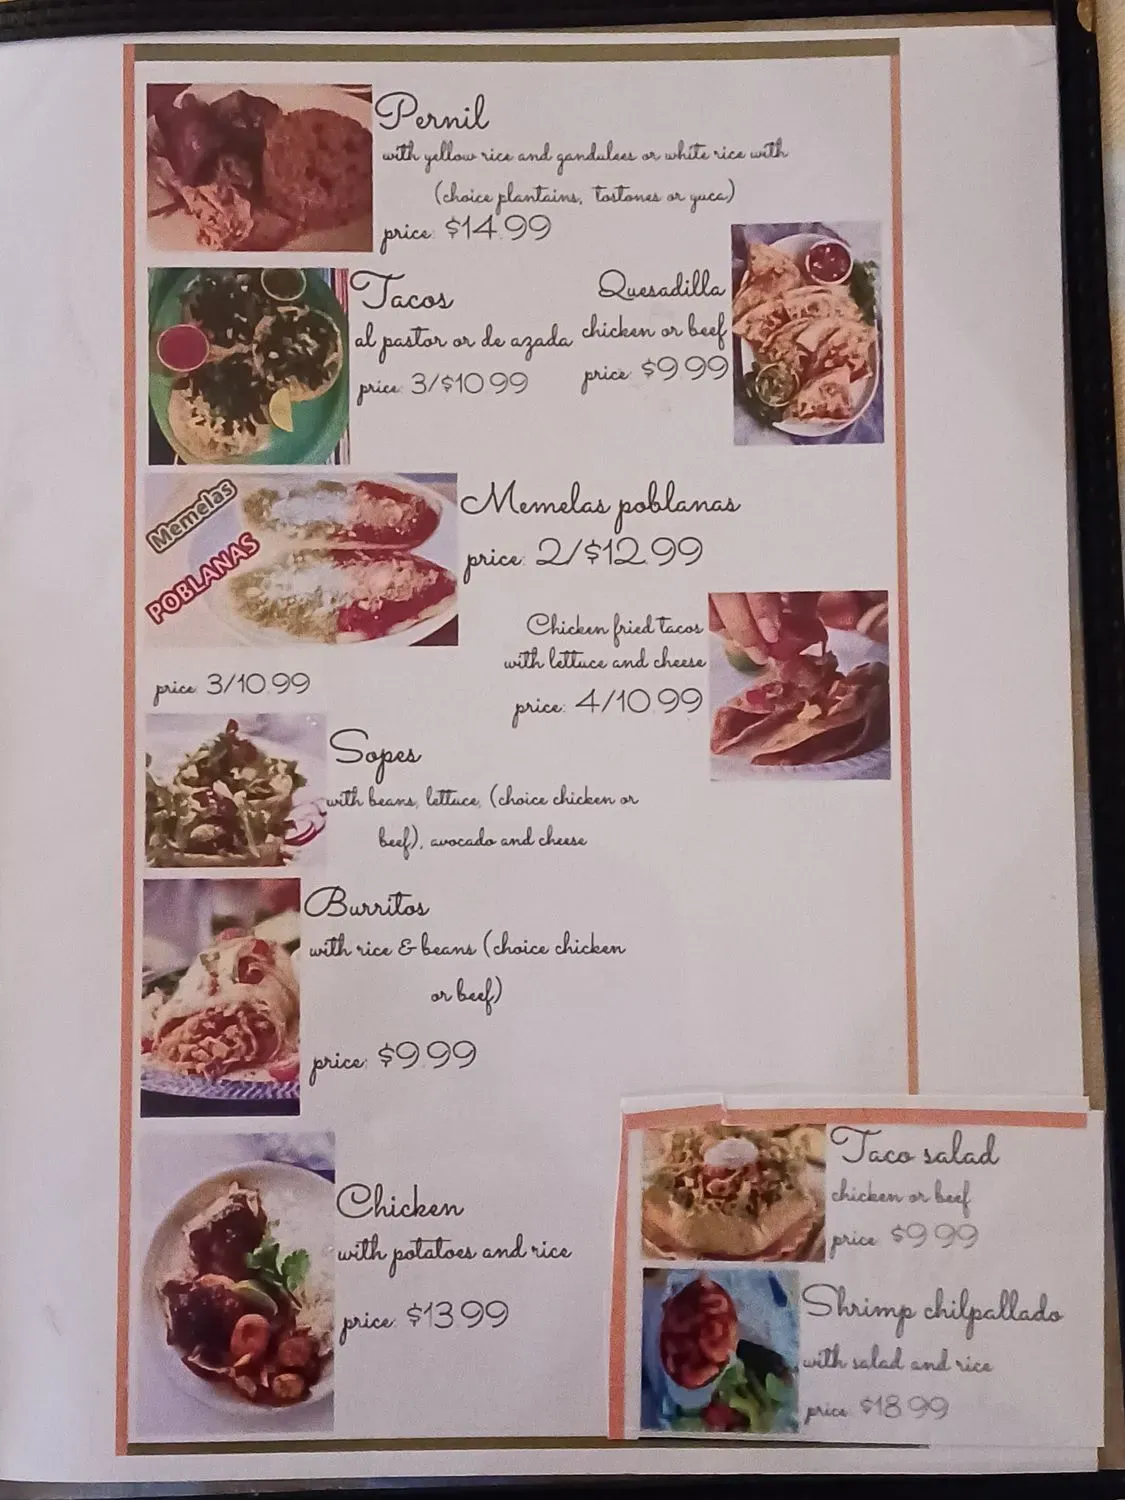 Pernil
with yellow rice and gandulees or white rice with
(choice plantains, tostones or yuca)
price: $14.99
Tacos
al pastor or de azada
price: 3/$10.99
Quesadilla
chicken or beef
price: $9.99
Memelas
POBLANAS
Memelas poblanas
price: 2/$12.99
Chicken fried tacos
with lettuce and cheese
price: 4/10.99
price: 3/10.99
Sopes
with beans, lettuce, (choice chicken or
beef), avocado and cheese
Burritos
with rice & beans (choice chicken
or beef)
price: $9.99
Chicken
with potatoes and rice
price: $13.99
Taco salad
chicken or beef
price: $9.99
Shrimp chilpallado
with salad and rice
price: $18.99